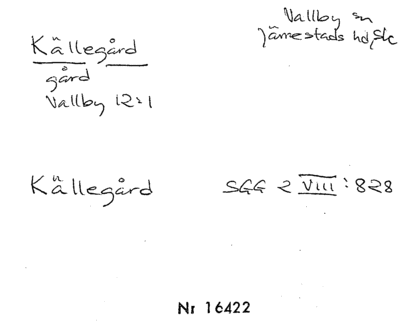 Vallby sn
Järrestads hd, Sk
Källegård
gård
Vallby 12:1
Källegård SGG 2 VIII:828
Nr 16422